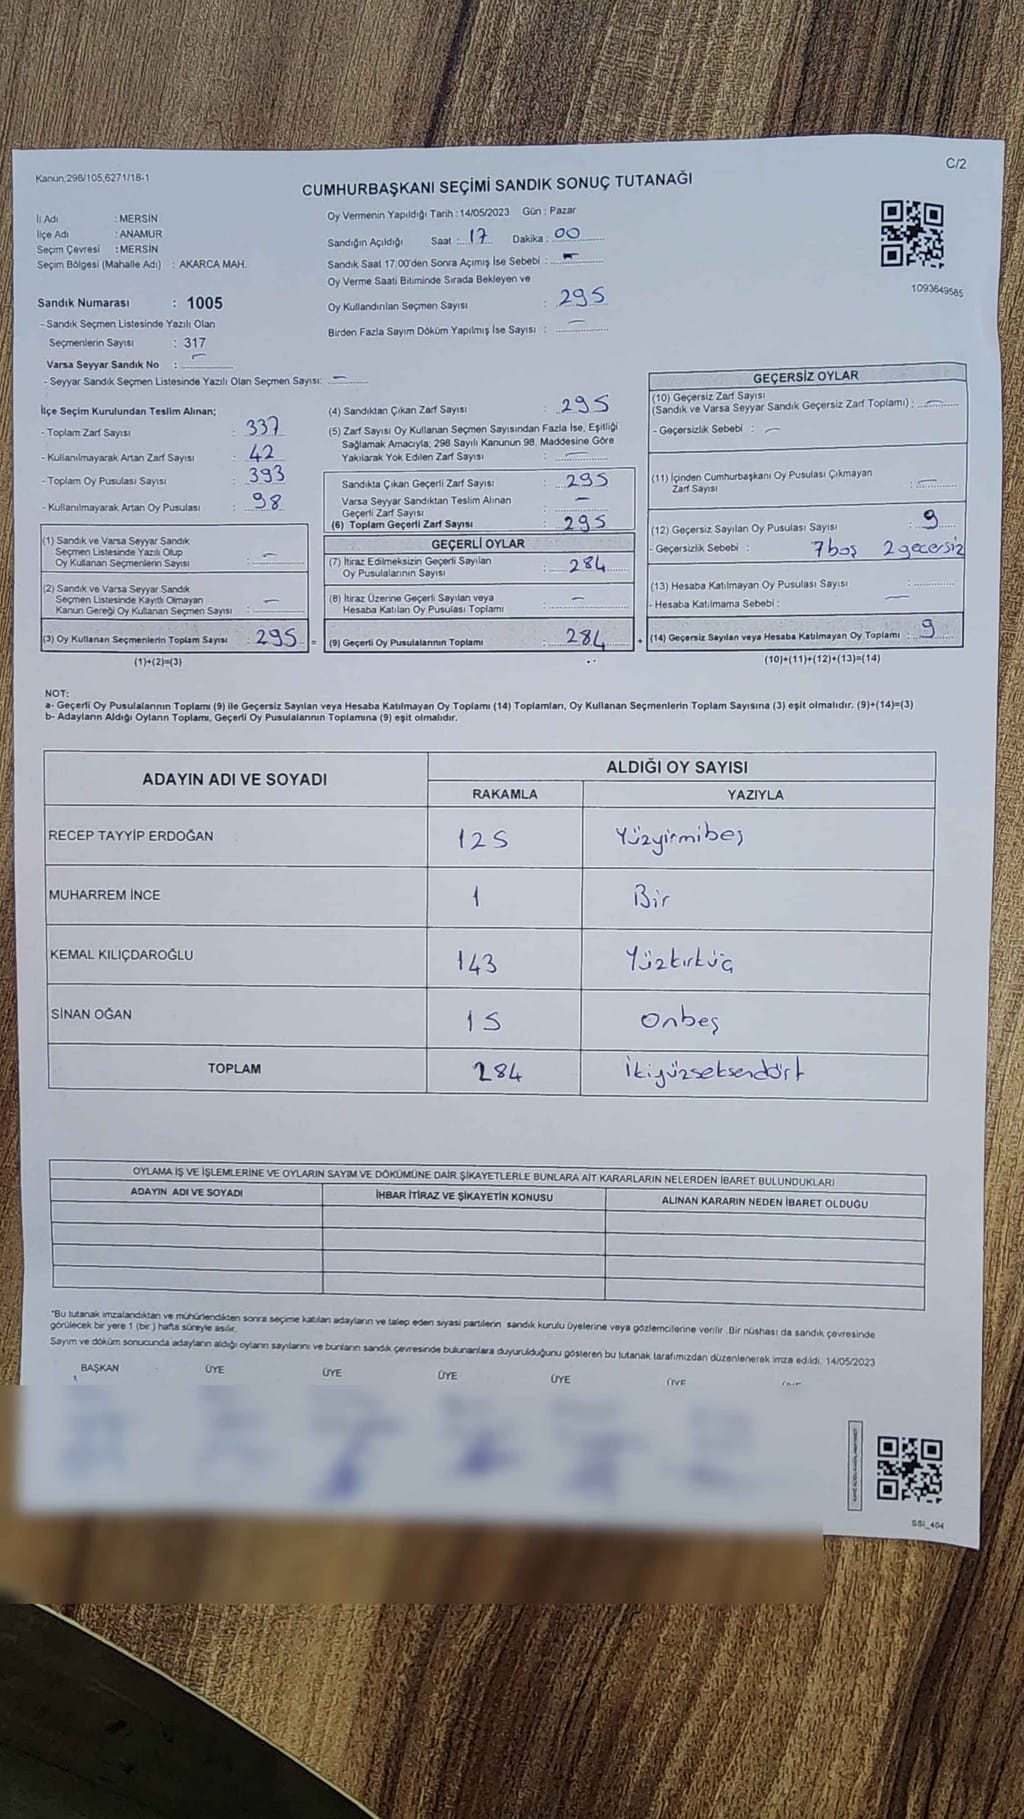 Kanun;298/105,6271/18-1
C/2
CUMHURBAŞKANI SEÇİMİ SANDIK SONUÇ TUTANAĞI
İl Adı : MERSİN
İlçe Adı : ANAMUR
Seçim Çevresi : MERSİN
Seçim Bölgesi (Mahalle Adı) : AKARCA MAH.
Oy Vermenin Yapıldığı Tarih : 14/05/2023 Gün : Pazar
Sandığın Açıldığı Saat : 17 Dakika : 00
Sandık Saat 17:00'den Sonra Açımış İse Sebebi : –
Oy Verme Saati Bitiminde Sırada Bekleyen ve
Oy Kullandırılan Seçmen Sayısı : 295
Birden Fazla Sayım Döküm Yapılmış İse Sayısı : –
1093649585
Sandık Numarası : 1005
- Sandık Seçmen Listesinde Yazılı Olan
Seçmenlerin Sayısı : 317
Varsa Seyyar Sandık No : –
- Seyyar Sandık Seçmen Listesinde Yazılı Olan Seçmen Sayısı: –
İlçe Seçim Kurulundan Teslim Alınan;
- Toplam Zarf Sayısı : 337
- Kullanılmayarak Artan Zarf Sayısı : 42
- Toplam Oy Pusulası Sayısı : 393
- Kullanılmayarak Artan Oy Pusulası : 98
(1) Sandık ve Varsa Seyyar Sandık
Seçmen Listesinde Yazılı Olup
Oy Kullanan Seçmenlerin Sayısı : –
(2) Sandık ve Varsa Seyyar Sandık
Seçmen Listesinde Kayıtlı Olmayan
Kanun Gereği Oy Kullanan Seçmen Sayısı : –
(3) Oy Kullanan Seçmenlerin Toplam Sayısı : 295 =
(1)+(2)=(3)
(4) Sandıktan Çıkan Zarf Sayısı : 295
(5) Zarf Sayısı Oy Kullanan Seçmen Sayısından Fazla İse, Eşitliği
Sağlamak Amacıyla; 298 Sayılı Kanunun 98. Maddesine Göre
Yakılarak Yok Edilen Zarf Sayısı : –
Sandıkta Çıkan Geçerli Zarf Sayısı : 295
Varsa Seyyar Sandıktan Teslim Alınan
Geçerli Zarf Sayısı : –
(6) Toplam Geçerli Zarf Sayısı : 295
GEÇERLİ OYLAR
(7) İtiraz Edilmeksizin Geçerli Sayılan
Oy Pusulalarının Sayısı : 284
(8) İtiraz Üzerine Geçerli Sayılan veya
Hesaba Katılan Oy Pusulası Toplamı : –
(9) Geçerli Oy Pusulalarının Toplamı : 284 +
GEÇERSİZ OYLAR
(10) Geçersiz Zarf Sayısı
(Sandık ve Varsa Seyyar Sandık Geçersiz Zarf Toplamı) : –
- Geçersizlik Sebebi : –
(11) İçinden Cumhurbaşkanı Oy Pusulası Çıkmayan
Zarf Sayısı : –
(12) Geçersiz Sayılan Oy Pusulası Sayısı : 9
- Geçersizlik Sebebi : 7 boş 2 gecersiz
(13) Hesaba Katılmayan Oy Pusulası Sayısı :
- Hesaba Katılmama Sebebi : –
(14) Geçersiz Sayılan veya Hesaba Katılmayan Oy Toplamı : 9
(10)+(11)+(12)+(13)=(14)
NOT:
a- Geçerli Oy Pusulalarının Toplamı (9) ile Geçersiz Sayılan veya Hesaba Katılmayan Oy Toplamı (14) Toplamları, Oy Kullanan Seçmenlerin Toplam Sayısına (3) eşit olmalıdır. (9)+(14)=(3)
b- Adayların Aldığı Oyların Toplamı, Geçerli Oy Pusulalarının Toplamına (9) eşit olmalıdır.
ADAYIN ADI VE SOYADI
ALDIĞI OY SAYISI
RAKAMLA YAZIYLA
RECEP TAYYİP ERDOĞAN 125 Yüzyirmibeş
MUHARREM İNCE 1 Bir
KEMAL KILIÇDAROĞLU 143 Yüzkırküç
SİNAN OĞAN 15 Onbeş
TOPLAM 284 İkiyüzseksendört
OYLAMA İŞ VE İŞLEMLERİNE VE OYLARIN SAYIM VE DÖKÜMÜNE DAİR ŞİKAYETLERLE BUNLARA AİT KARARLARIN NELERDEN İBARET BULUNDUKLARI
ADAYIN ADI VE SOYADI İHBAR İTİRAZ VE ŞİKAYETİN KONUSU ALINAN KARARIN NEDEN İBARET OLDUĞU
*Bu tutanak imzalandıktan ve mühürlendikten sonra seçime katılan adayların ve talep eden siyasi partilerin sandık kurulu üyelerine veya gözlemcilerine verilir. Bir nüshası da sandık çevresinde
görülecek bir yere 1 (bir) hafta süreyle asılır.
Sayım ve döküm sonucunda adayların aldığı oyların sayılarını ve bunların sandık çevresinde bulunanlara duyurulduğunu gösteren bu tutanak tarafımızdan düzenlenerek imza edildi. 14/05/2023
BAŞKAN ÜYE ÜYE ÜYE ÜYE ÜYE
SSI_404